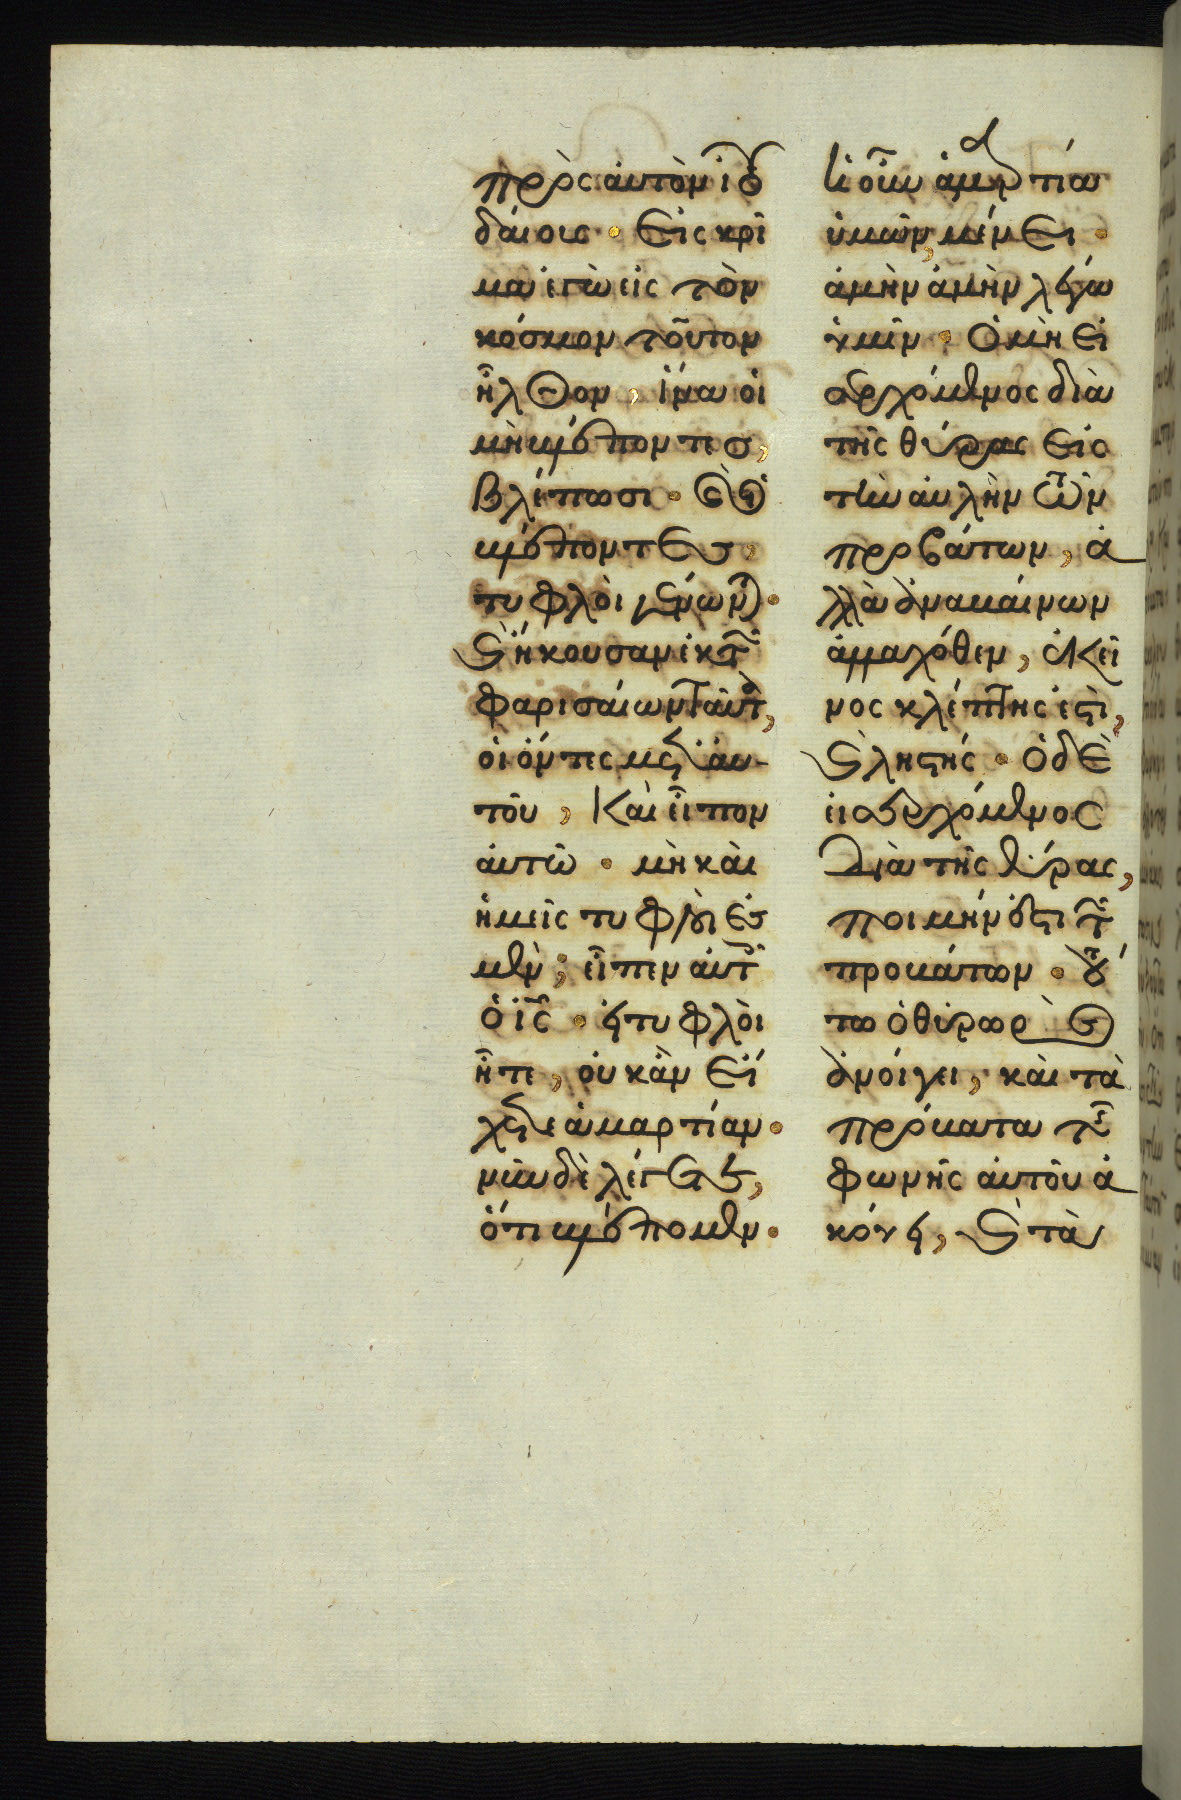 πρὸς αὐτὸν ἰου
δαίοις · Εἰς κρῖ
μα ἐγὼ εἰς τὸν
κόσμον τοῦτον
ἦλθον, ἵνα οἱ
μὴ βλέποντες,
βλέπωσι · καὶ οἱ
βλέποντες,
τυφλοὶ γένων̑τ ·
καὶ ἤκουσαν ἐκ τῶν
φαρισαίων ταῦτα,
οἱ ὄντες μετ' αὐ-
τοῦ, Καὶ εἶπον
αὐτῶ · μὴ καὶ
ἡμεῖς τυφλοί ἐσ
μεν; εἶπεν αὐτοῖς
ὁ ἰς̅ · εἰ τυφλοὶ
ἦτε, οὐκ ἂν εἴ
χετε ἁμαρτίαν ·
νῦν δὲ λέγετε,
ὅτι βλέπομεν ·
ἡ οὖν ἁμαρτία
ὑμῶν, μένει ·
ἀμὴν ἀμὴν λέγω
ὑμῖν · Ὁ μὴ εἰ
σερχόμενος διὰ
τῆς θύρας εἰς
τὴν αὐλὴν τῶν
προβάτων, ἀ
λλὰ ἀναβαίνων
ἀλλαχόθεν, ἐκεῖ
νος κλέπτης ἐστὶ,
καὶ ληστής · ὁ δὲ
εἰσερχόμενος
διὰ τῆς θύρας,
ποιμήν ἐστι τῶν
προβάτων · τού
τω ὁ θυρωρὸς
ἀνοίγει, καὶ τὰ
πρόβατα τῆς
φωνῆς αὐτοῦ ἀ
κούει, καὶ τὰ